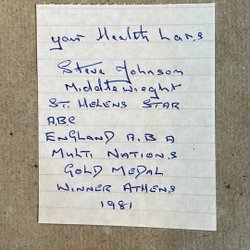 your Health Lars
Steve Johnson
Middleweight
ST. HELENS STAR
ABC
ENGLAND A.B A
MULTI NATIONS
GOLD MEDAL
WINNER ATHENS
1981